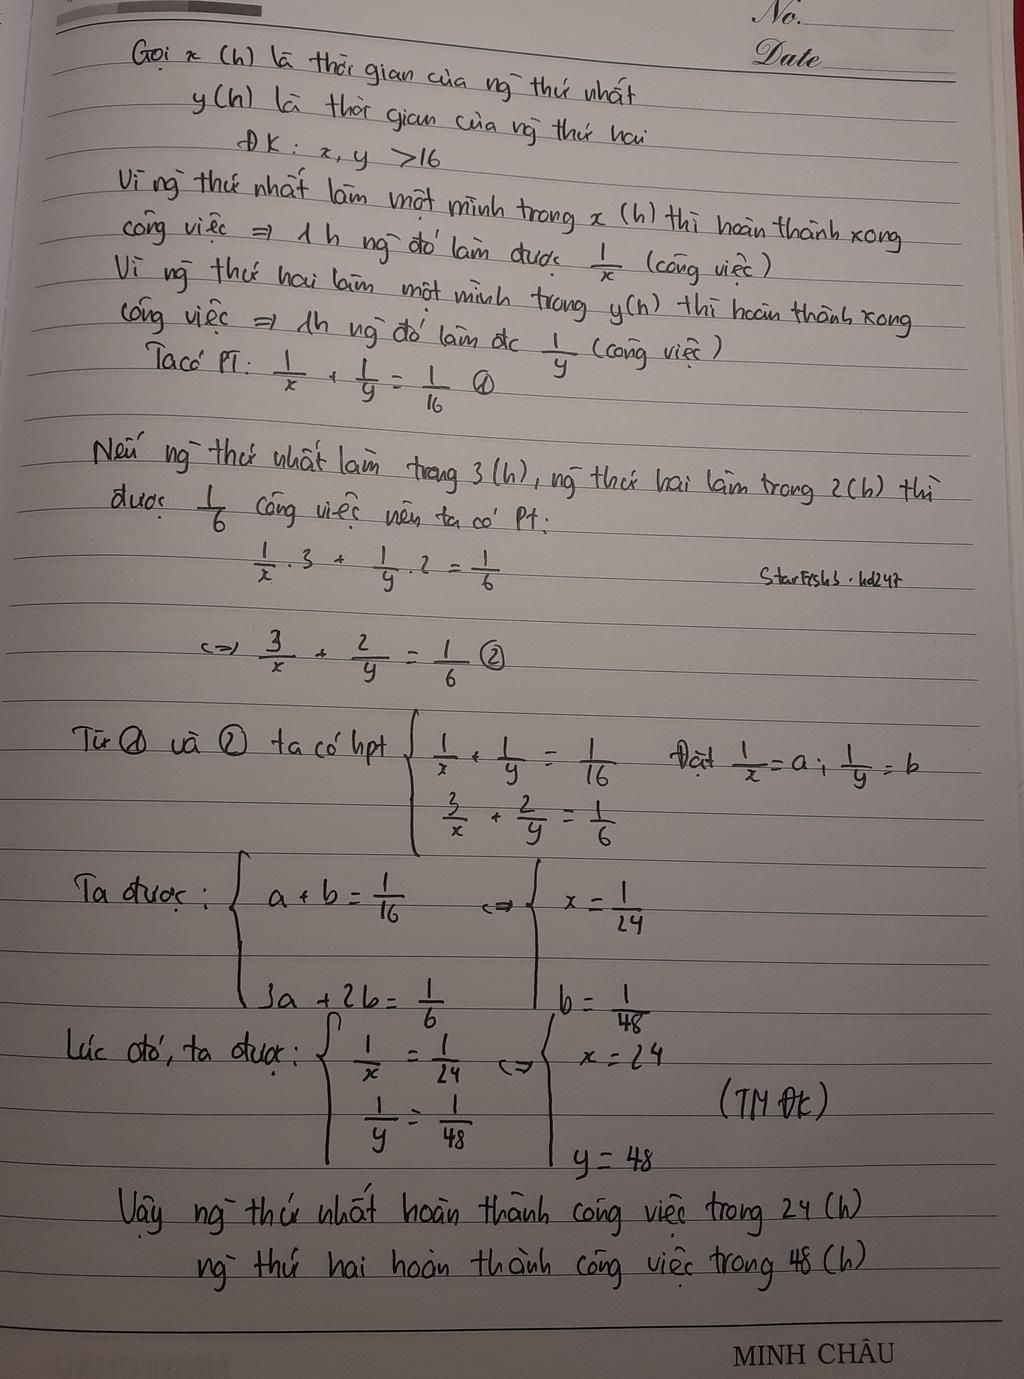 No.
Date
Gọi x (h) là thời gian của ng̅ thứ nhất
y(h) là thời gian của ng̅ thứ hai
ĐK: x, y >16
Vì ng̅ thứ nhất làm một mình trong x (h) thì hoàn thành xong
công việc => 1h ng̅ đó làm được 1/x (công việc)
Vì ng̅ thứ hai làm một mình trong y(h) thì hoàn thành xong
công việc => 1h ng̅ đó làm đc 1/y (công việc)
Ta có PT: 1/x + 1/y = 1/16 ①
Nếu ng̅ thứ nhất làm trong 3(h), ng̅ thứ hai làm trong 2(h) thì
được 1/6 công việc nên ta có Pt:
1/x . 3 + 1/y . 2 = 1/6
StarFish3.hd247
<=> 3/x + 2/y = 1/6 ②
Từ ① và ② ta có hpt { 1/x + 1/y = 1/16 Đặt 1/x = a; 1/y = b
3/x + 2/y = 1/6
Ta được: { a + b = 1/16 <=> { x = 1/24
3a + 2b = 1/6 b = 1/48
Lúc đó, ta được: { 1/x = 1/24 <=> { x = 24
(TM ĐK)
1/y = 1/48 y = 48
Vậy ng̅ thứ nhất hoàn thành công việc trong 24 (h)
ng̅ thứ hai hoàn thành công việc trong 48 (h)
MINH CHÂU